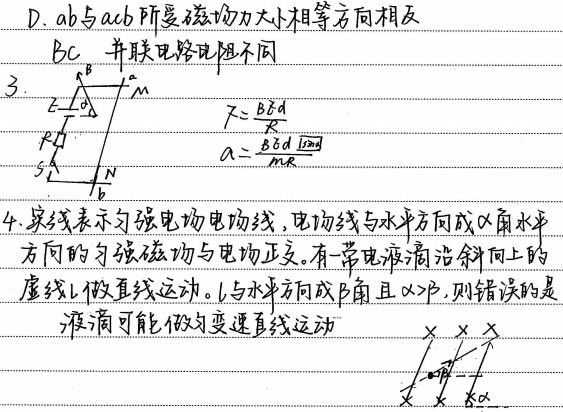 D. ab与acb所受磁场力大小相等方向相反
BC 并联电路电阻不同
3.
B a
M
E α
R
S N
b
F=BEd/R
a=BEd sinα/mR
4.实线表示匀强电场电场线,电场线与水平方向成α角水平
方向的匀强磁场与电场正交。有一带电液滴沿斜向上的
虚线L做直线运动。L与水平方向成β角且α>β,则错误的是
液滴可能做匀变速直线运动
× × ×
β
× × × α